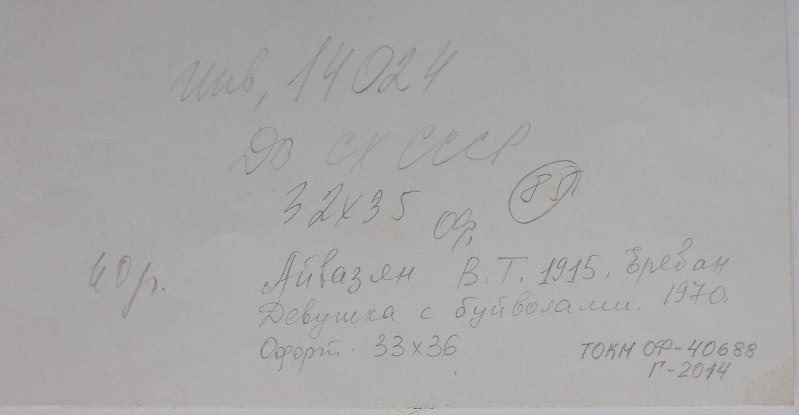 инв, 14024
ДВ СХ СССР
32х35 оф,
85г
40р.
Айвазян В.Т. 1915. Ереван
Девушка с буйволами. 1970.
Офорт. 33х36
ТОКМ ОФ-40688
Г-2014